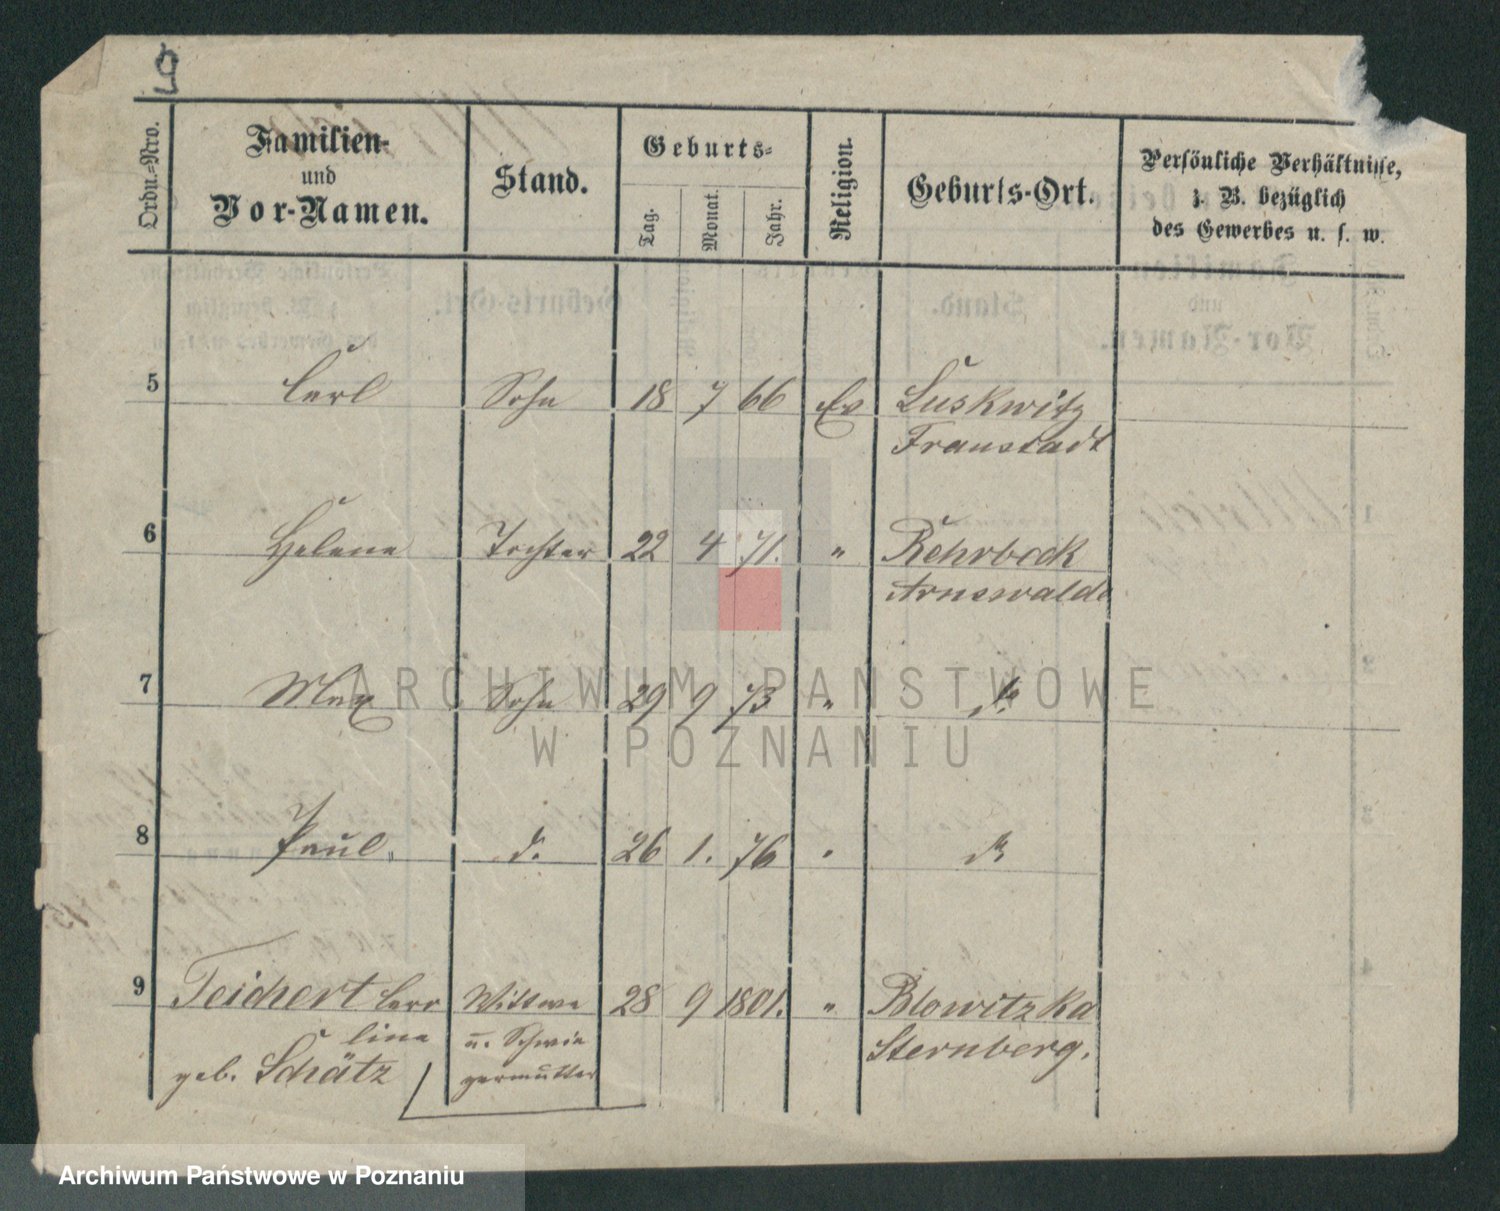 Ordn.-Nro.
Familien-
und
Vor-Namen.
Stand.
Geburts-
Tag.
Monat.
Jahr.
Religion.
Geburts-Ort.
Persönliche Verhältnisse,
z. B. bezüglich
des Gewerbes u. s. w.
5 Carl Sohn 18 7 66 Ev Luskwitz
Fraustadt
6 Helene Tochter 22 4 71. " Rehrbeck
Arnswalde
7 Max Sohn 29 9 73 " do
ARCHIWUM PAŃSTWOWE
W POZNANIU
8 Paul. d. 26 1. 76 " do
9 Teichert Caro Wittwe 28 9 1801. " Blowitzka
line u. Schwie Sternberg.
geb. Schätz germutter
Archiwum Państwowe w Poznaniu